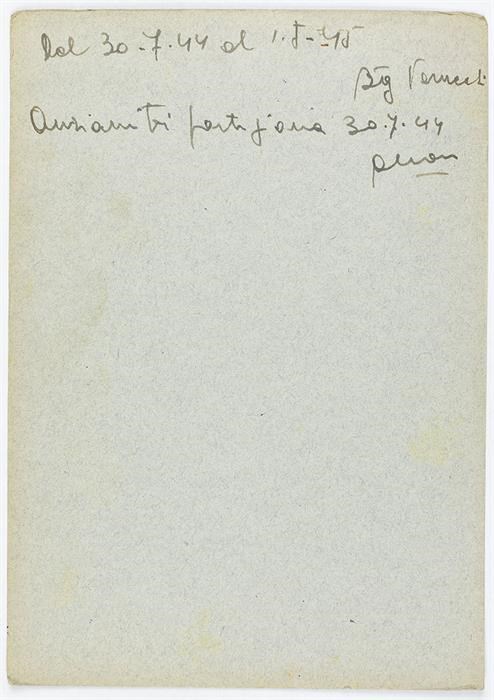 Dal 30-7-44 al 1-5-45
Btg
Anzianità partigiana 30.7.44